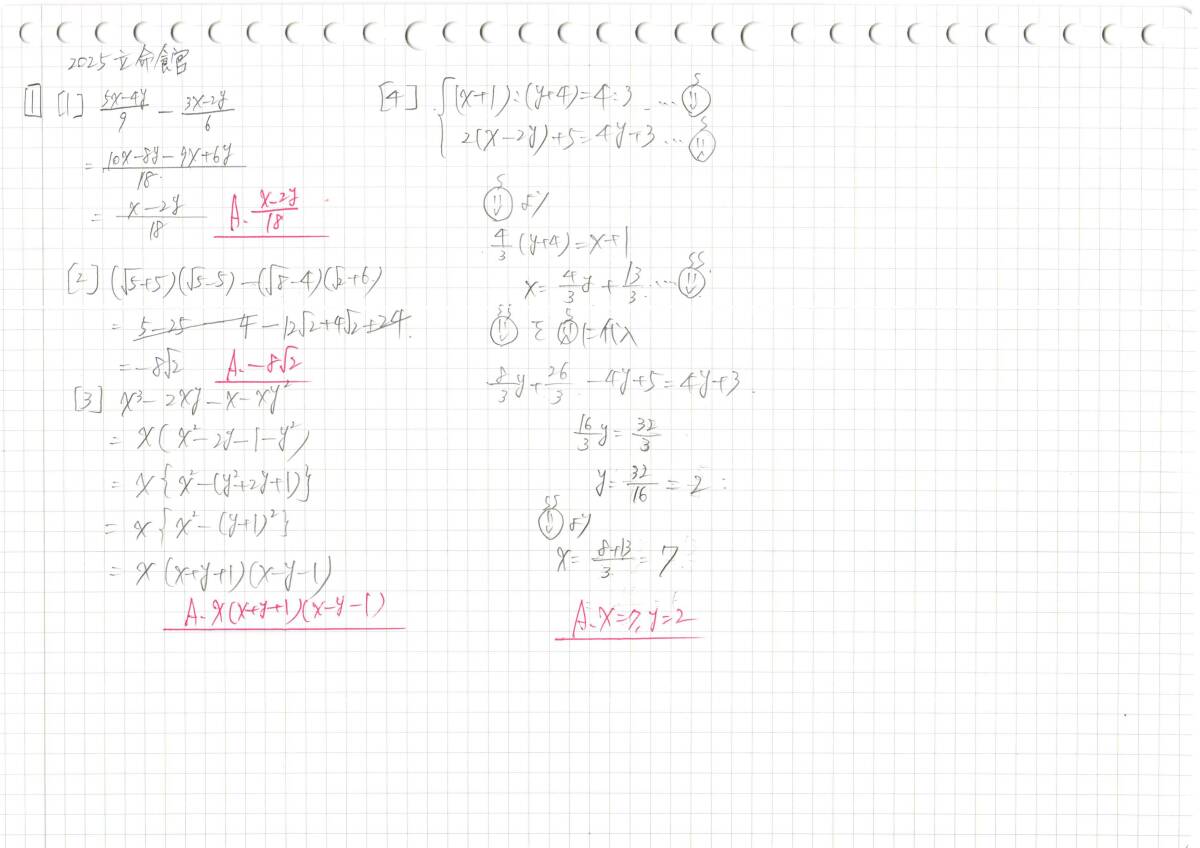 2025立命館
1 [1] (5x-4y)/9 - (3x-2y)/6
= (10x-8y-9x+6y)/18
= (x-2y)/18 A. (x-2y)/18
[2] (√5+5)(√5-5)-(√8-4)(√2+6)
= 5-25-4-12√2+4√2+24
=-8√2 A. -8√2
[3] x³-2xy-x-xy²
= x(x²-2y-1-y²)
= x{x²-(y²+2y+1)}
= x{x²-(y+1)²}
= x(x+y+1)(x-y-1)
A. x(x+y+1)(x-y-1)
[4] {(x+1):(y+4)=4:3 …
2(x-2y)+5=4y+3 …
より
4/3(y+4)=x+1
x=4/3y+13/3 …
を に代入
8/3y+26/3-4y+5=4y+3
16/3y=32/3
y=32/16=2
より
x=(8+13)/3=7
A. x=7, y=2